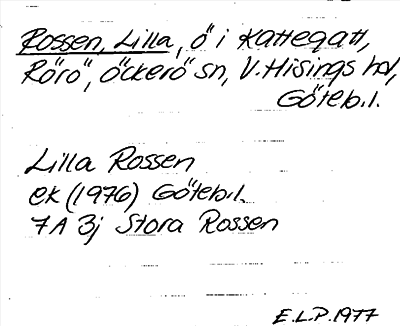 Rossen, Lilla, ö i Kattegatt,
Rörö, Öckerö sn, V. Hisings hd,
Göteb.l.
Lilla Rossen
ek (1976) Göteb.l.
7A 3j Stora Rossen
E.L.P. 1977